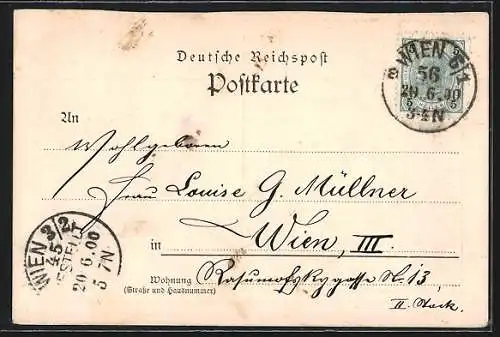 Deutsche Reichspost
Postkarte
WIEN 6/1
56
20 6.00
3-4N
5 5
An
Wohlgeboren
Frau Louise G. Müllner
in Wien, III.
Wohnung Rasumofskygasse N. 13,
(Straße und Hausnummer)
II. Stock.
WIEN 3/2
45
BESTELLT
20 6.00
5 7N